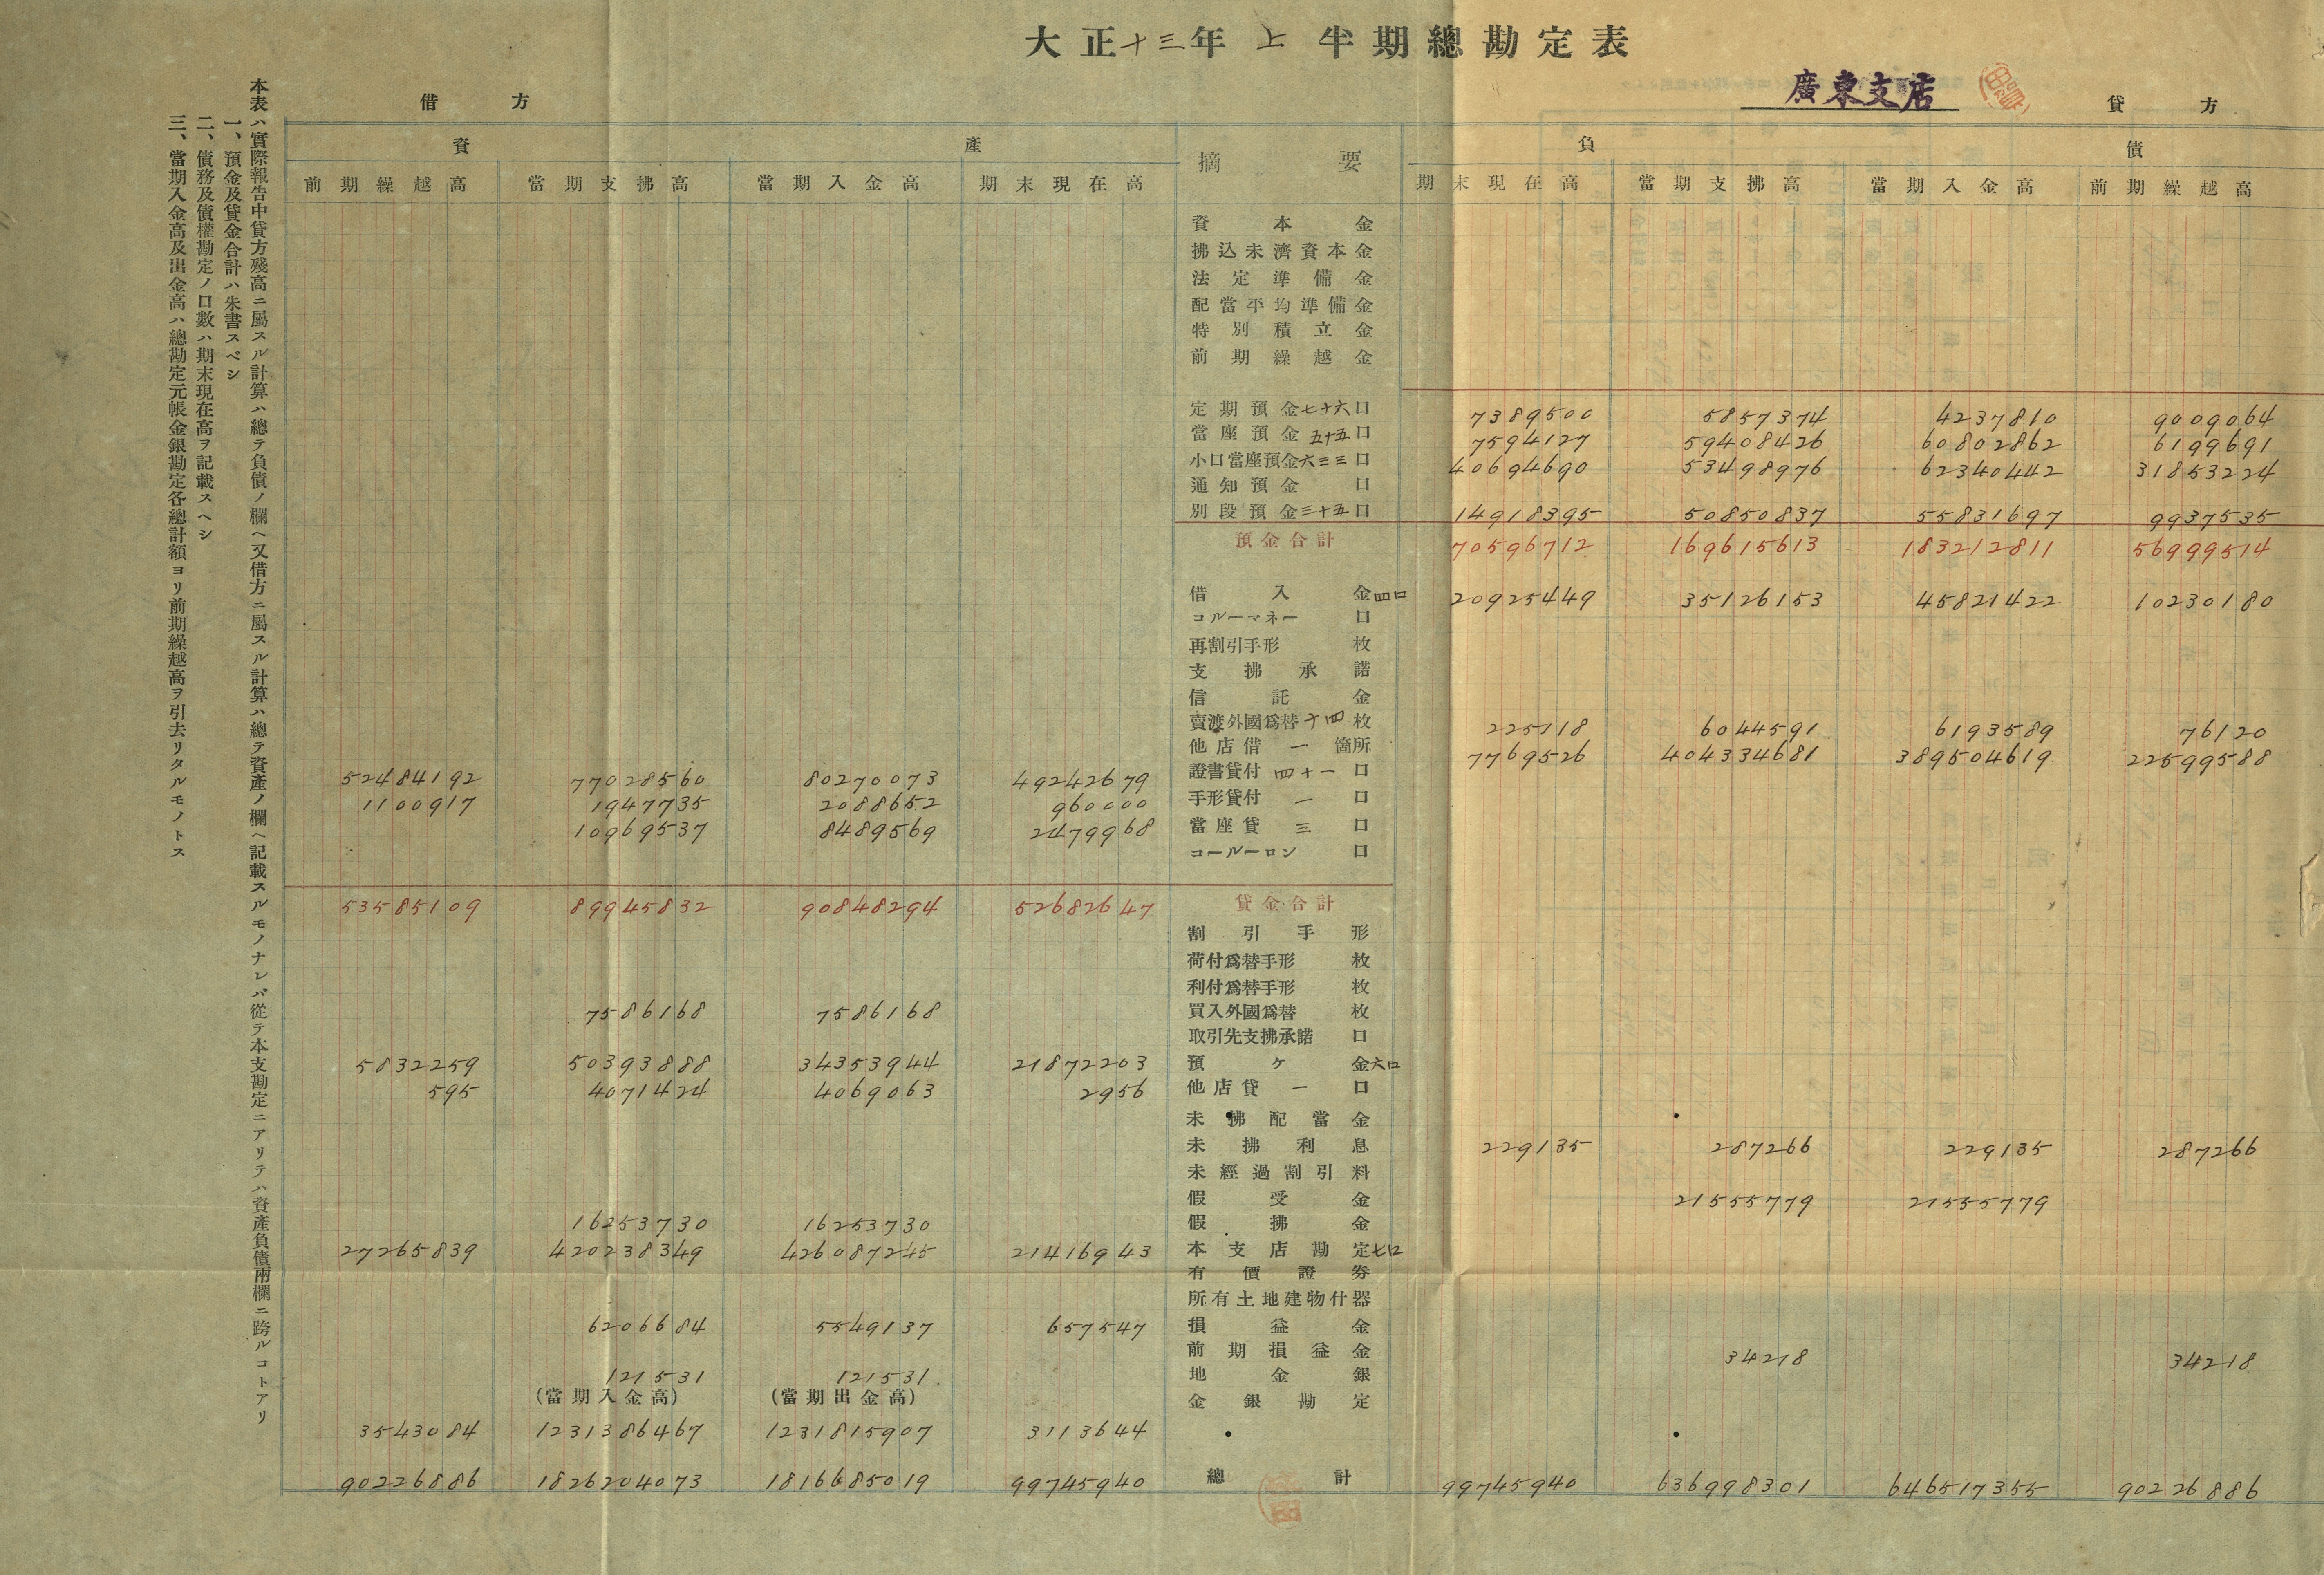 大正十三年上半期總勘定表
廣東支店
借方
貸方
資產
摘要
負債
前期繰越高 當期支拂高 當期入金高 期末現在高 期末現在高 當期支拂高 當期入金高 前期繰越高
資本金
拂込未濟資本金
法定準備金
配當平均準備金
特別積立金
前期繰越金
定期預金七十六口 7389500 5857374 4237810 9009064
當座預金五十五口 7594127 59408426 60802862 6199691
小口當座預金六三三口 40694690 53498976 62340442 31853224
通知預金 口
別段預金三十五口 14918395 50850837 55831697 9937535
預金合計 70596712 169615613 183212811 56999514
借入金四口 20925449 35126153 45821422 10230180
コルーマネー 口
再割引手形 枚
支拂承諾
信託金
賣渡外國爲替十四枚 225118 6044591 6193589 76120
他店借一箇所 7769526 404334681 389504619 22599588
52484192 77028560 80270073 49242679 證書貸付四十一口
1100917 1947735 2088652 960000 手形貸付一口
10969537 8489569 2479968 當座貸三口
コールーロン 口
53585109 89945832 90848294 52682647 貸金合計
割引手形
荷付爲替手形 枚
利付爲替手形 枚
7586168 7586168 買入外國爲替 枚
取引先支拂承諾 口
5832259 50393888 34353944 21872203 預ケ金六口
595 4071424 4069063 2956 他店貸一口
未拂配當金
未拂利息 229135 287266 229135 287266
未經過割引料
假受金 21555779 21555779
16253730 16253730 假拂金
27265839 420238349 426087245 21416943 本支店勘定七口
有價證券
所有土地建物什器
6206684 5549137 657547 損益金
前期損益金 34218 34218
121531 121531 地金銀
(當期入金高) (當期出金高) 金銀勘定
3543084 1231386467 1231815907 3113644
90226886 1826204073 1816685019 99745940 總計 99745940 636998301 646517355 90226886
本表ハ實際報告中貸方殘高ニ屬スル計算ハ總テ負債ノ欄ヘ又借方ニ屬スル計算ハ總テ資產ノ欄ヘ記載スルモノナレバ從テ本支勘定ニアリテハ資產負債兩欄ニ跨ルコトアリ
一、預金及貸金合計ハ朱書スベシ
二、債務及債權勘定ノ口數ハ期末現在高ヲ記載スヘシ
三、當期入金高及出金高ハ總勘定元帳金銀勘定各總計額ヨリ前期繰越高ヲ引去リタルモノトス